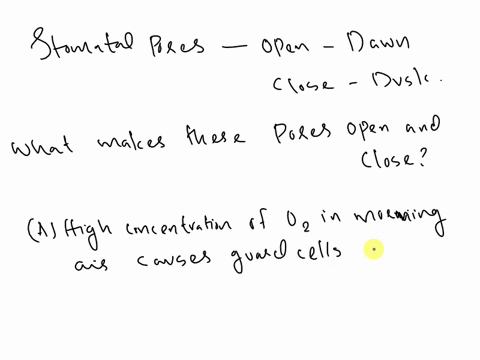 Stomatal Pores — Open - Dawn
Close - Dusk.
What makes these Pores Open and
Close?
(A) High concentration of O2 in morning
air causes guard cells